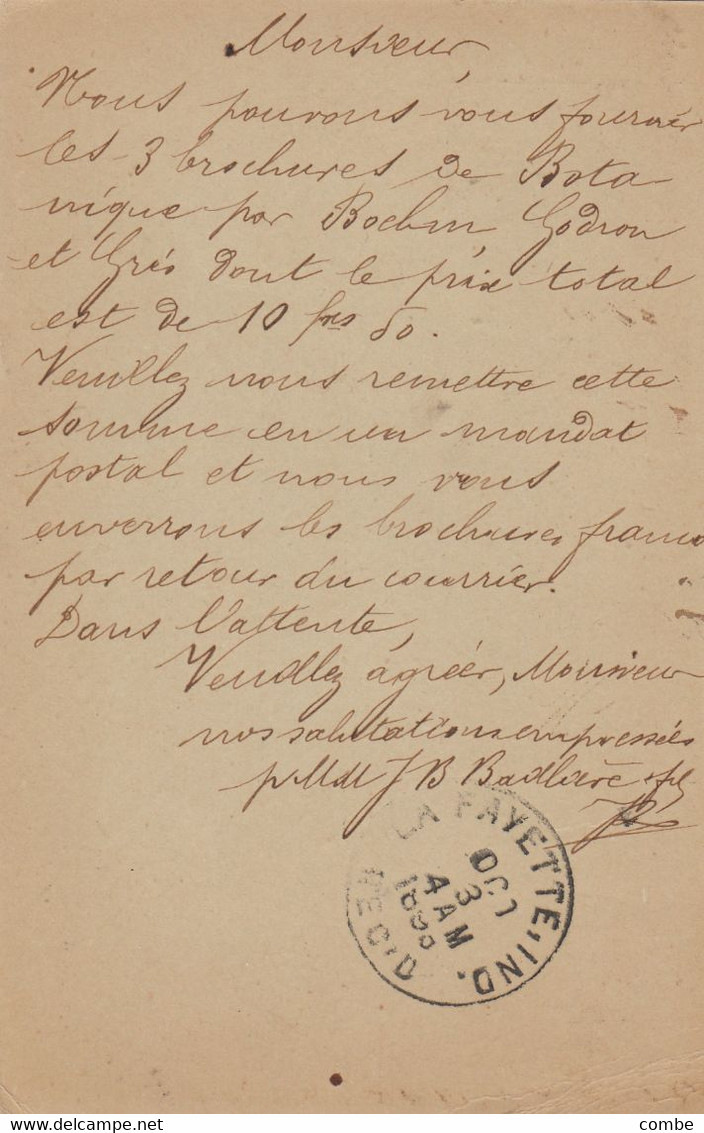 Monsieur,
Nous pouvons vous fournir
les 3 brochures de Bota
nique par Boehm, Godron
et Gris dont le prix total
est de 10 frs 50.
Veuillez nous remettre cette
somme en un mandat
postal et nous vous
enverrons les brochures franco
par retour du courrier.
Dans l'attente,
Veuillez agréer, Monsieur
nos salutations empressées
p MM J B Baillière & fils
LA FAYETTE, IND.
OCT
3
4 AM
REC'D
combe